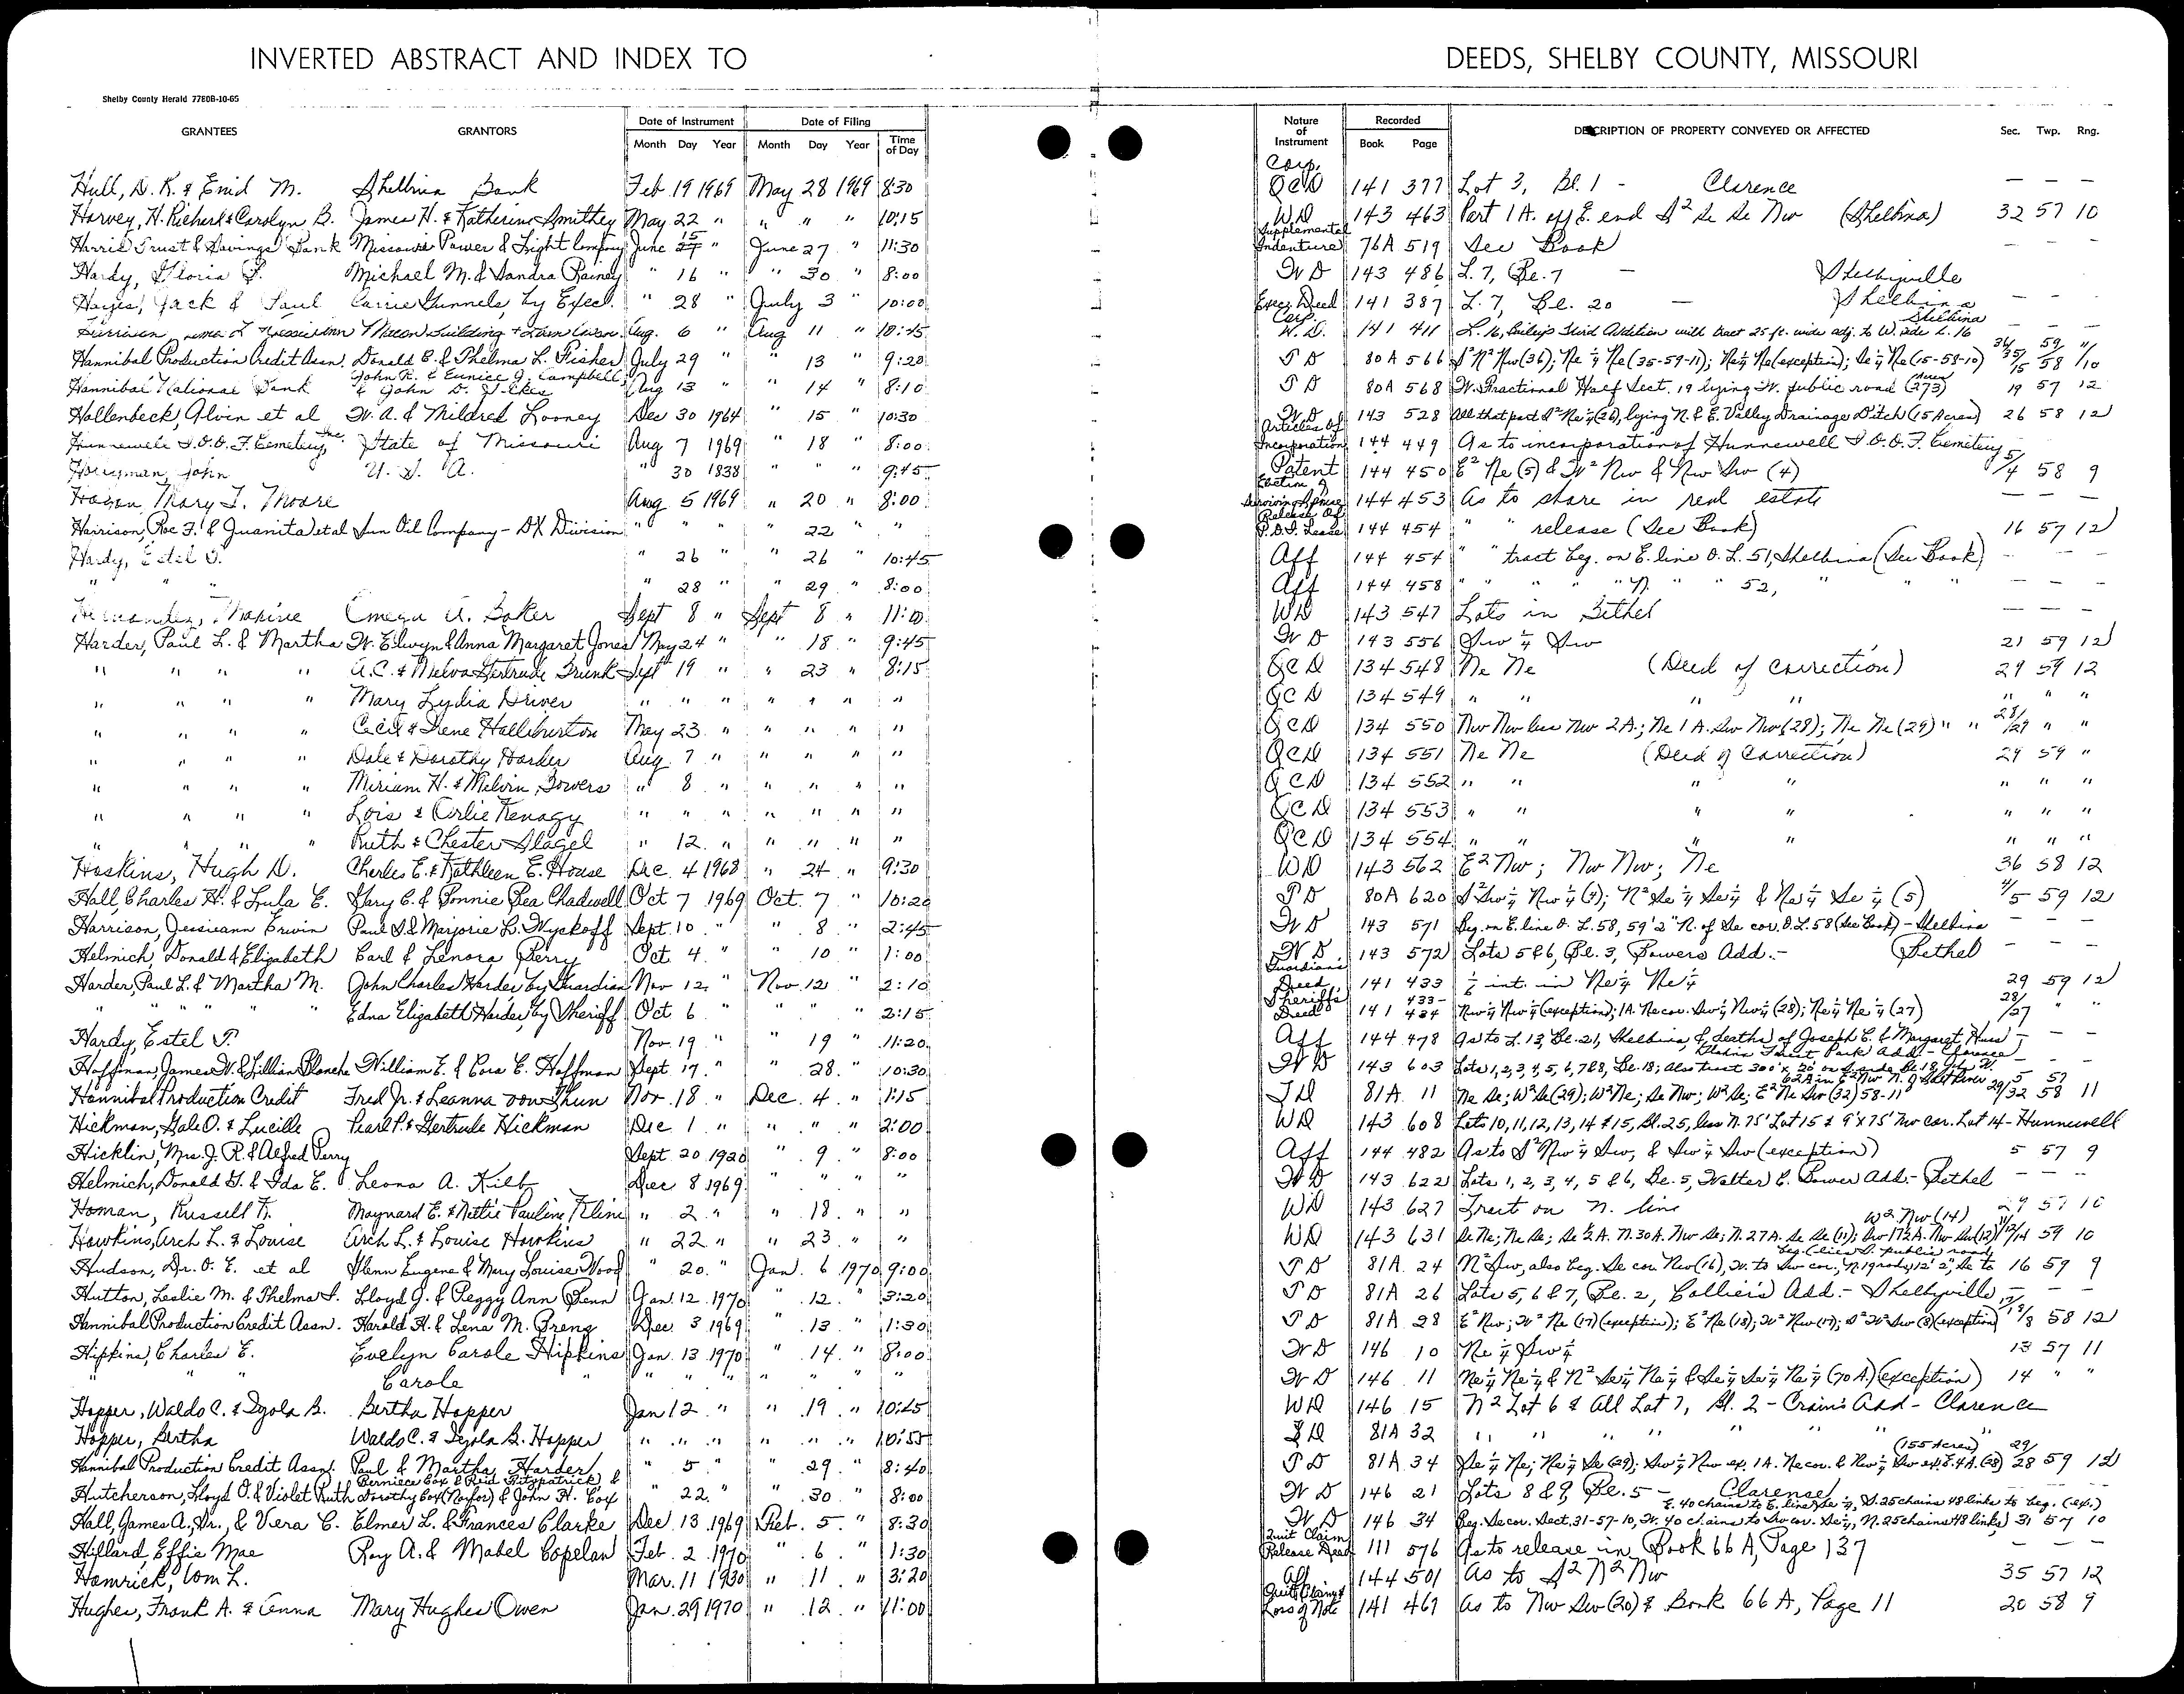 INVERTED ABSTRACT AND INDEX TO DEEDS, SHELBY COUNTY, MISSOURI
Shelby County Herald 7780B-10-65
GRANTEES GRANTORS Date of Instrument Month Day Year Date of Filing Month Day Year Time of Day Nature of Instrument Recorded Book Page DESCRIPTION OF PROPERTY CONVEYED OR AFFECTED Sec. Twp. Rng.
Hull, D. K. & Enid M. Shelbina Bank Feb 19 1969 May 28 1969 8:30 Corp. QCD 141 377 Lot 3, Bl. 1 - Clarence — — —
Harvey, H. Richard & Carolyn B. James H. & Katherine Smithey May 22 " " " " 10:15 WD 143 463 Part 1A. off E. end S² Se Se Nw (Shelbina) 32 57 10
Harris Trust & Savings Bank Missouri Power & Light Company June 15 27 " June 27 " 11:30 Supplemental Indenture 76A 519 See Book — —
Hardy, Gloria F. Michael M. & Sandra Rainey " 16 " " 30 " 8:00 WD 143 486 L. 7, Bl. 7 — Shelbyville
Hayes, Jack & Paul Carrie Gunnels, by Exec. " 28 " July 3 " 10:00 Exec. Deed 141 387 L. 7, Bl. 20 — Shelbina — —
Macon Building & Loan Assn. Aug. 6 " Aug 11 " 10:45 Corp. W.D. 141 411 L. 16, Bailey's Third Addition with tract 25 ft. wide adj. to W. side L. 16 Shelbina — — —
Hannibal Production Credit Assn. Donald E. & Thelma L. Fisher July 29 " " 13 " 9:20 TD 80A 566 S² N² Nw (36); Ne ¼ Ne (35-59-11); Ne ¼ Ne (exception); Se ¼ Ne (15-58-10) 36/35/15 59/58 11/10
Hannibal National Bank John R. & Eunice J. Campbell & John D. Wilkes Aug 13 " " 14 " 8:10 TD 80A 568 W. Fractional Half Sect. 19 lying W. public road (273 Acres) 19 57 12
Hollenbeck, Alvin et al W. A. & Mildred Looney Dec 30 1964 " 15 " 10:30 WD 143 528 All that part S² Ne ¼ (26), lying N. & E. Valley Drainage Ditch (15 Acres) 26 58 12
Hunnewell I.O.O.F. Cemetery, Inc. State of Missouri Aug 7 1969 " 18 " 8:00 Articles of Incorporation 144 449 As to incorporation of Hunnewell I.O.O.F. Cemetery
John U. S. A. " 30 1838 " " " 9:45 Patent 144 450 E² Ne (5) & W² Nw & Nw Sw (4) 5/4 58 9
Mary I. Moore Aug 5 1969 " 20 " 8:00 Election of Surviving Spouse 144 453 As to share in real estate — — —
Harrison, Roe F. & Juanita et al Sun Oil Company - DX Division " " " " 22 " " Release Of Lease 144 454 " " release (See Book) 16 57 12
Hardy, Estel T. " 26 " " 26 " 10:45 Aff 144 454 " " tract beg. on E. line O. L. 51, Shelbina (See Book) — — —
" " " 28 " " 29 " 8:00 Aff 144 458 " " " " " N. " " 52, " " " — — —
Hernandez, Maxine Omega A. Baker Sept 8 " Sept 8 " 11:00 WD 143 547 Lots in Bethel — — —
Harder, Paul L. & Martha W. Elwyn & Anna Margaret Jones May 24 " " 18 " 9:45 WD 143 556 Sw ¼ Sw 21 59 12
" " " " A.C. & Melva Gertrude Trunk Sept 19 " " 23 " 8:15 QCD 134 548 Ne Ne (Deed of Correction) 29 59 12
" " " " Mary Lydia Driver " " " " " " " QCD 134 549 " " " " " " "
" " " " Cecil & Irene Halliburton May 23 " " " " " QCD 134 550 Nw Nw less Nw 2A.; Ne 1 A. Sw Nw (28); Ne Ne (29) " " 28/29 " "
" " " " Dale & Dorothy Harder Aug. 7 " " " " " QCD 134 551 Ne Ne (Deed of Correction) 29 59 "
" " " " Miriam H. & Melvin Sowers " 8 " " " " " QCD 134 552 " " " " " " "
" " " " Lois & Orlie Kenagy " " " " " " " QCD 134 553 " " " " " " "
" " " " Ruth & Chester Slagel " 12 " " " " " QCD 134 554 " " " " " " "
Hoskins, Hugh D. Charles E. & Kathleen E. House Dec. 4 1968 " 24 " 9:30 WD 143 562 E² Nw; Nw Nw; Ne 36 58 12
Hall, Charles H. & Lula E. Gary C. & Bonnie Bea Chadwell Oct 7 1969 Oct. 7 " 10:20 TD 80A 620 S² Sw ¼ Nw ¼ (4); N² Se ¼ Se ¼ & Ne ¼ Se ¼ (5) 4/5 59 12
Harrison, Jessieann Erwin Paul S. & Marjorie L. Wyckoff Sept. 10 " " 8 " 2:45 WD 143 571 Beg. on E. line O. L. 58, 59'2" N. of Se cor. O.L. 58 (See Book) - Shelbina — — —
Helmich, Donald & Elizabeth Carl & Lenora Perry Oct. 4 " " 10 " 1:00 WD 143 572 Lots 5 & 6, Bl. 3, Bowers Add. - Bethel — — —
Harder, Paul L. & Martha M. John Charles Harder by Guardian Nov 12 " Nov. 12 " 2:10 Guardian's Deed 141 433 int. in Ne ¼ Ne ¼ 29 59 12
" " " " Edna Elizabeth Harder, by Sheriff Oct 6 " " " " 2:15 Sheriff's Deed 141 433-434 Nw ¼ Nw ¼ (exception); 1A. Ne cor. Sw ¼ Nw ¼ (28); Ne ¼ Ne ¼ (27) 28/27 " "
Hardy, Estel T. Nov. 19 " " 19 " 11:20 Aff 144 478 As to L. 13, Bl. 21, Shelbina, & deaths of Joseph E. & Margaret Huss — — —
Hoffman, James W. & Lillian Blanche William E. & Cora E. Hoffman Sept 17 " " 28 " 10:30 WD 143 603 Lots 1, 2, 3, 4, 5, 6, 7 & 8, Bl. 18; Also tract 300' x 20' Forest Park Add - Clarence
Hannibal Production Credit Fred Jr. & Leanna von Thun Nov. 18 " Dec. 4 " 1:15 TD 81A 11 Ne Se; W² Se (29); W² Ne; Se Nw; W² Se; E² Ne Sw (32) 58-11 62A in E² Nw 29/32 58 11
Hickman, Gale O. & Lucille Pearl P. & Gertrude Hickman Dec 1 " " " " 2:00 WD 143 608 Lots 10, 11, 12, 13, 14 & 15, Bl. 25, less N. 75' Lot 15 & 9'x75' Nw cor. Lot 14 - Hunnewell
Hicklin, Mrs. J. R. & Alfred Perry Sept. 20 1920 " 9 " 8:00 Aff 144 482 As to S² Nw ¼ Sw, & Sw ¼ Sw (exception) 5 57 9
Helmich, Donald G. & Ida E. Leona A. Kilb Dec 8 1969 " " " " WD 143 622 Lots 1, 2, 3, 4, 5 & 6, Bl. 5, Walter C. Bower Add. - Bethel — — —
Homan, Russell F. Maynard E. & Nettie Pauline Kline " 2 " " 18 " " WD 143 627 Tract on N. line 29 57 10
Hawkins, Arch L. & Louise Arch L. & Louise Hawkins " 22 " " 23 " " WD 143 631 Se Ne; Ne Se; Se ½ A. N. 30A. Nw Se; N. 27A. Se Se (11); Sw 172A. Nw Sw (12) W² Nw (14) 11/12/14 59 10
Hudson, Dr. O. E. et al Glenn Eugene & Mary Louise Wood " 20 " Jan. 6 1970 9:00 TD 81A 24 N² Sw, also beg. Se cor Nw (16), W. to Sw cor., N 19 rods, 12' 2", Se to beg. (lies S. public road) 16 59 9
Hutton, Leslie M. & Thelma I. Lloyd J. & Peggy Ann Penn Jan. 12 1970 " 12 " 3:20 TD 81A 26 Lots 5, 6 & 7, Bl. 2, Collier's Add. - Shelbyville — —
Hannibal Production Credit Assn. Harold H. & Lena M. Greng Dec. 3 1969 " 13 " 1:30 TD 81A 28 E² Nw; W² Ne (17) (exception); E² Ne (18); W² Nw (17); S² W² Sw (8) (exception) 17/18/8 58 12
Hipkins, Charles E. Evelyn Carole Hipkins Jan. 13 1970 " 14 " 8:00 WD 146 10 Ne ¼ Sw ¼ 13 57 11
" " " Carole " " " " " " " " WD 146 11 Ne ¼ Ne ¼ & N² Se ¼ Ne ¼ & Se ¼ Se ¼ Ne ¼ (70 A.) (exception) 14 " "
Hopper, Waldo C. & Izola B. Bertha Hopper Jan 12 " " 19 " 10:45 WD 146 15 N² Lot 6 & All Lot 7, Bl. 2 - Crain's Add - Clarence
Hopper, Bertha Waldo C. & Izola B. Hopper " " " " " " 10:55 TD 81A 32 " " " " " "
Hannibal Production Credit Assn. Paul & Martha Harder " 5 " " 29 " 8:40 TD 81A 34 Se ¼ Ne; Ne ¼ Se (29); Sw ¼ Nw ex. 1A. Ne cor. & Nw ¼ Sw ex. E. 4 A. (28) (155 Acres) 29/28 59 12
Hutcherson, Lloyd O. & Violet Ruth Berniece Cox & Reid Fitzpatrick & Dorothy Cox (Naylor) & John H. Cox " 22 " " 30 " 8:00 WD 146 21 Lots 8 & 9, Bl. 5 — Clarence
Hall, James A., Dr., & Vera C. Elmer L. & Frances Clarke Dec 13 1969 Feb. 5 " 8:30 WD 146 34 Beg. Se cor. Sect. 31-57-10, W. 40 chains to Sw cor. Se ¼, N. 25 chains 48 links, E. 40 chains to E. line Se ¼, S. 25 chains 48 links to beg. (ex.) 31 57 10
Hillard, Effie Mae Roy A. & Mabel Copelan Feb. 2 1970 " 6 " 1:30 Quit Claim Release Deed 111 576 As to release in Book 66 A, Page 137 — — —
Hamrick, Tom L. Mar. 11 1930 " 11 " 3:20 Aff 144 501 As to S² N² Nw 35 57 12
Hughes, Frank A. & Anna Mary Hughes Owen Jan. 29 1970 " 12 " 11:00 Quit Claim & Loss of Note 141 469 As to Nw Sw (20) & Book 66 A, Page 11 20 58 9